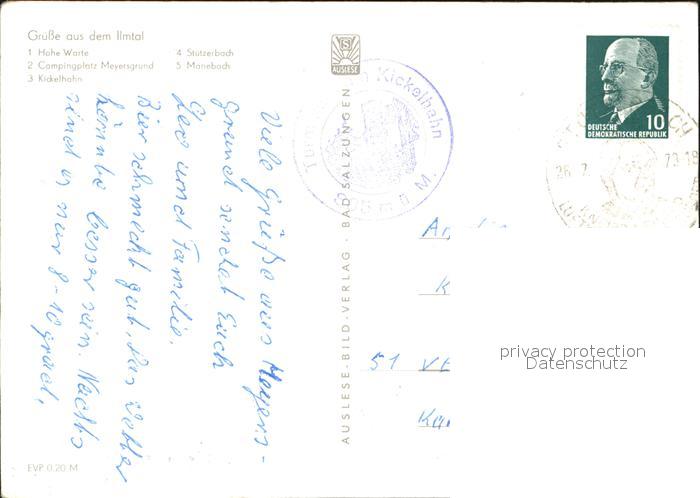 Grüße aus dem Ilmtal
1 Hohe Warte
2 Campingplatz Meyersgrund
3 Kickelhahn
4 Stützerbach
5 Manebach
S
AUSLESE
AUSLESE-BILD-VERLAG · BAD SALZUNGEN
Kickelhahn
M.
10
DEUTSCHE
DEMOKRATISCHE REPUBLIK
26.7.
Viele Grüße aus Meyers-
grund sendet Euch
Leo und Familie.
Bier schmeckt gut. Das Wetter
könnte besser sein. Nachts
sind es nur 8-10 grad.
51
privacy protection
Datenschutz
EVP 0.20 M